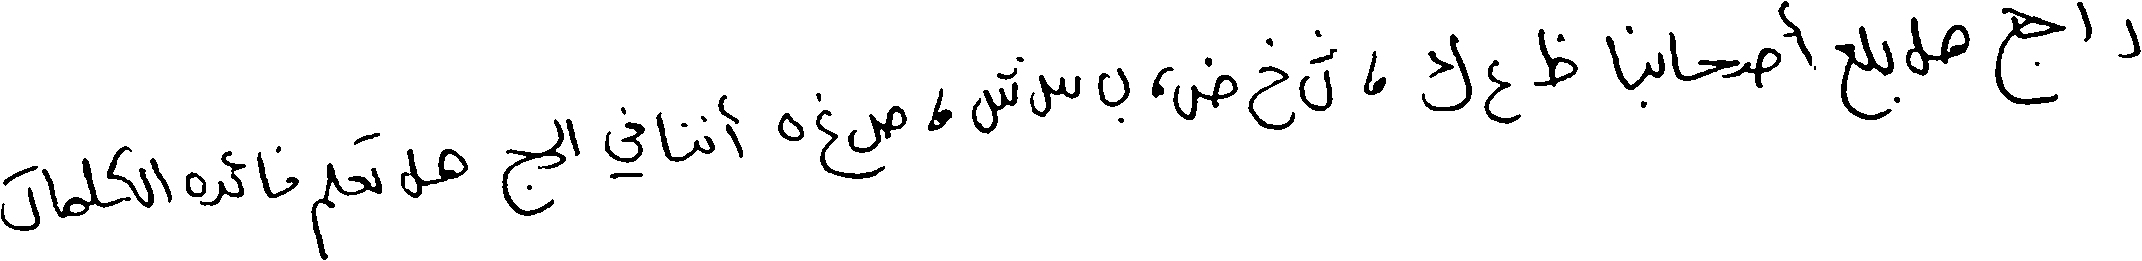 راجح هل بلع أصحابنا ظ ع ك ، ث خ ض ، ب س ش ، ص غ ه أننا في الحج هل تعلم فائده الكلمات